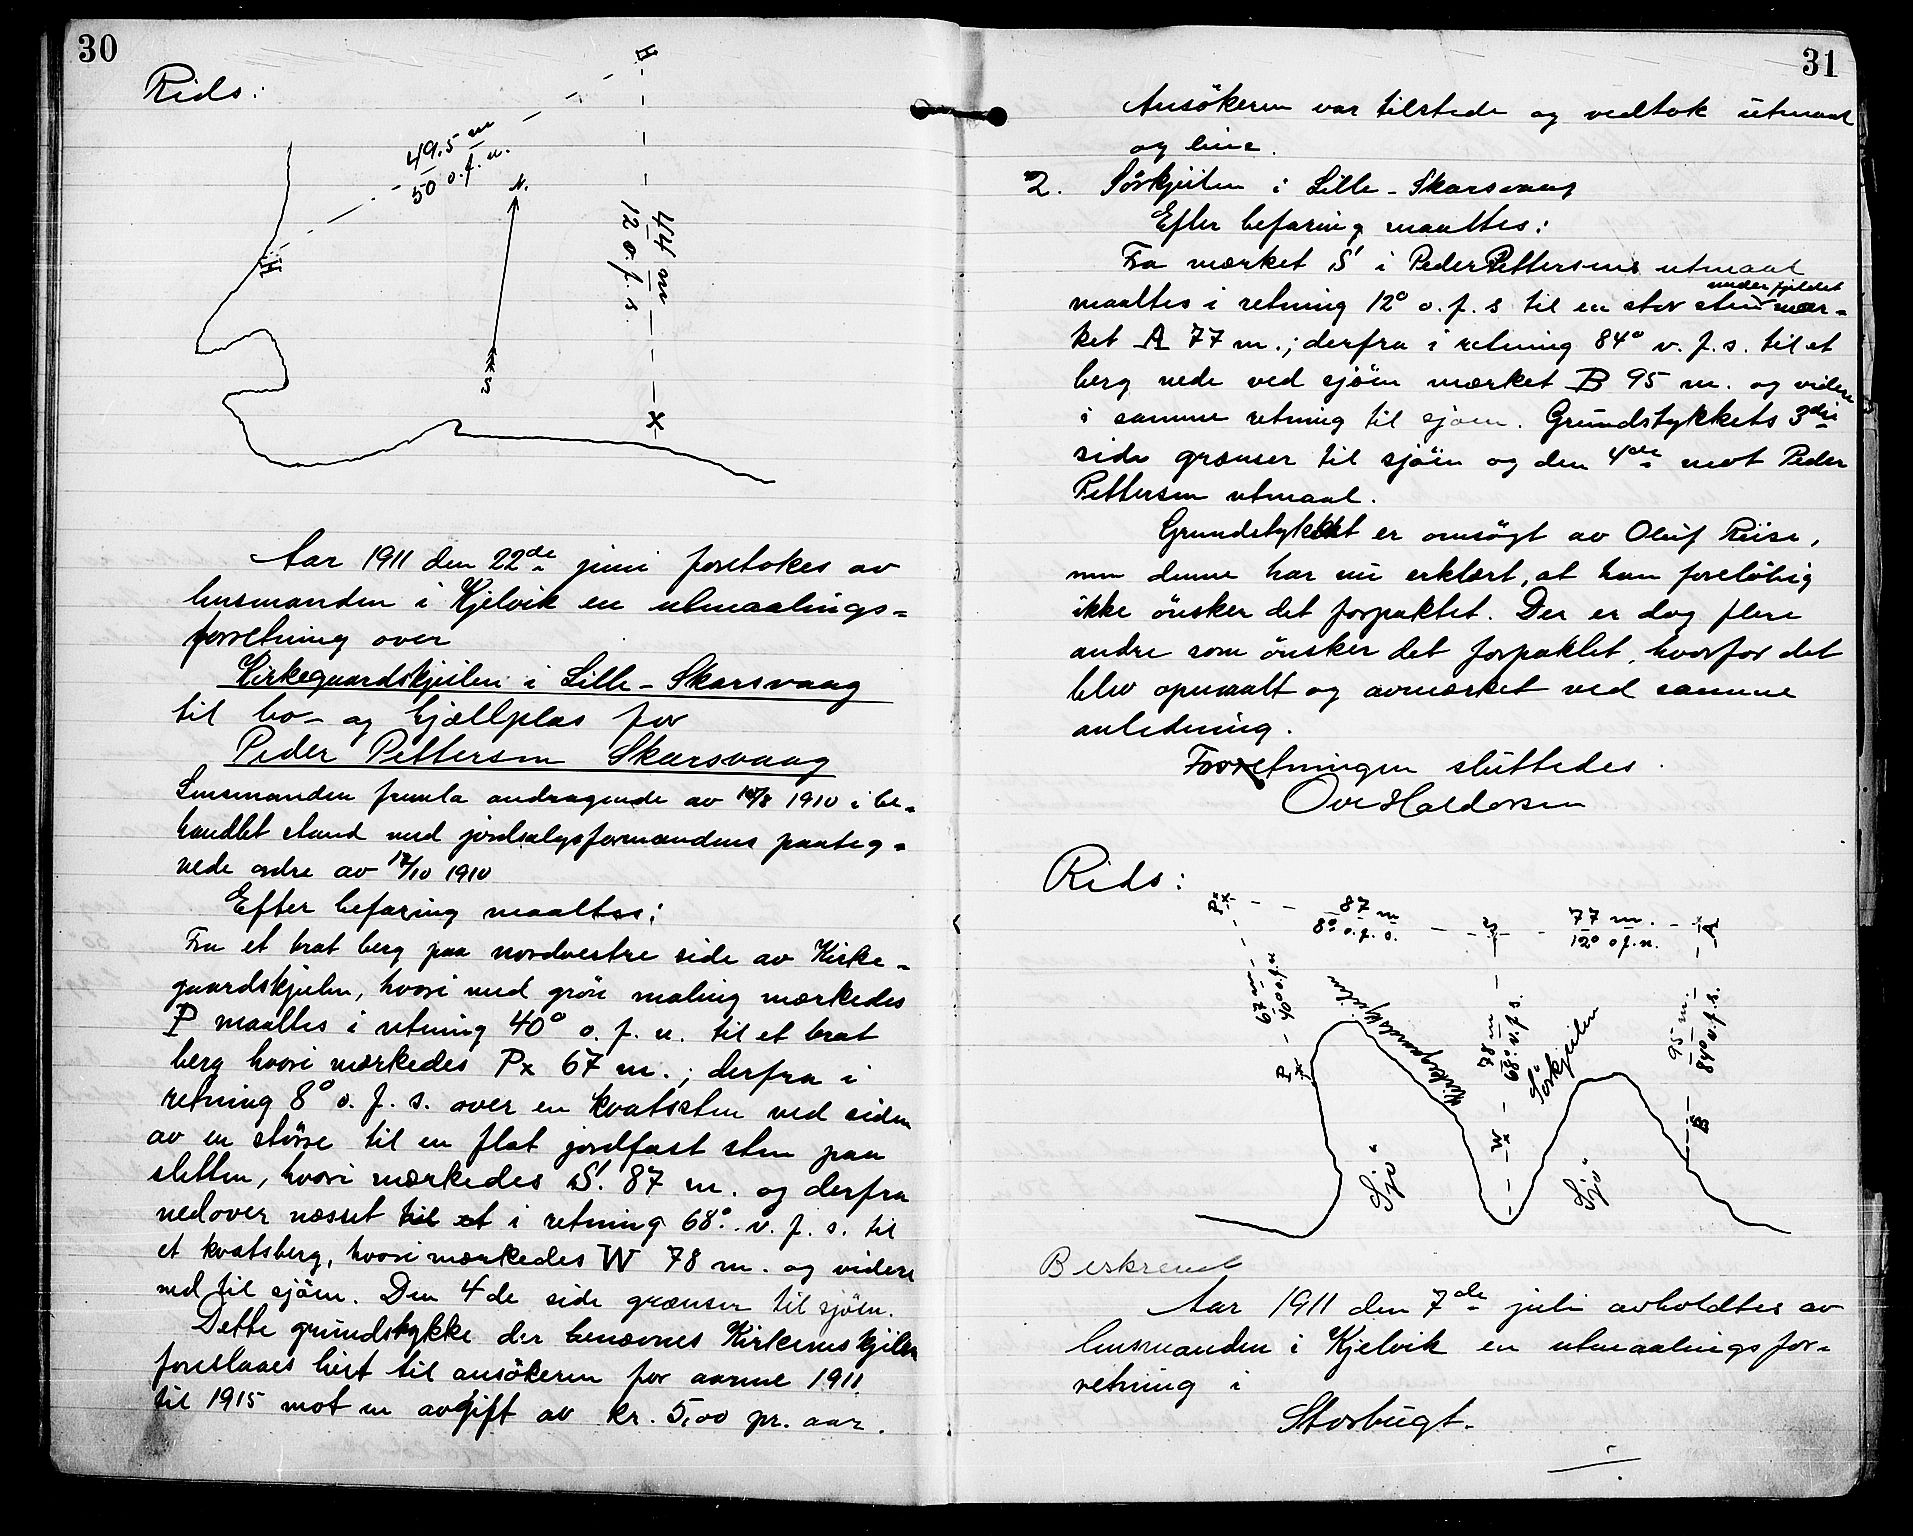 30
Rids:
H
49.5 m
50 o. f. n.
N.
44 m
12 o. f. s.
H
S
X
Aar 1911 den 22de juni foretokes av
lensmanden i Kjelvik en utmaalings-
forretning over
Kirkegaardskjeilen i Lille-Skarsvaag
til bo- og hjællplas for
Peder Pettersen Skarsvaag
Lensmanden fremla andragende av /8 1910 i be-
handlet stand med jordsalgsformandens paateg-
nede ordre av 17/10 1910
Efter befaring maaltes:
Fra et brat berg paa nordvestre side av Kirke-
gaardskjeilen, hvori med grön maling mærkedes
P maaltes i retning 40° o. f. n. til et brat
berg hvori mærkedes Px 67 m.; derfra i
retning 8° o. f. s. over en kvatssten ved siden
av en större til en flat jordfast sten paa
sletten, hvori mærkedes S. 87 m. og derfra
nedover næsset til et i retning 68° v. f. s. til
et kvatsberg, hvori mærkedes W 78 m. og videre
ned til sjöen. Den 4de side grænser til sjöen.
Dette grundstykke der benævnes Kirkeneskjeilen
foreslaaes leiet til ansökeren for aarene 1911
til 1915 mot en avgift av kr. 5,00 pr. aar.
31
Ansökeren var tilstede og vedtok utmaal
og leie.
2. Sörkjeilen i Lille-Skarsvaag
Efter befaring maaltes:
Fra mærket S i Peder Pettersens utmaal
under fjeldet
maaltes i retning 12° o. f. s til en stor sten mær-
ket A 77 m.; derfra i retning 84° v. f. s. til et
berg nede ved sjöen mærket B 95 m. og videre
i samme retning til sjöen. Grundstykkets 3die
side grænser til sjöen og den 4de mot Peder
Pettersen utmaal.
Grundstykket er omsögt av Oluf Riise,
men denne har nu erklært, at han forelöbig
ikke önsker det forpaktet. Der er dog flere
andre som önsker det forpaktet, hvorfor det
blev opmaalt og avmærket ved samme
anledning.
Forretningen sluttedes.
Ove Haldorsen
Rids:
Px
87 m
8° o. f. s.
S
77 m.
12° o f. n.
A
67 m
40° o. f. n
Kirkegaardskjeilen
78 m
68° v. f. s.
Sörkjeilen
95 m.
84° v. f. s.
P
W
B
Sjö
Sjö
Beskrevet
Aar 1911 den 7de juli avholdtes av
lensmanden i Kjelvik en utmaalingsfor-
retning i
Storbugt.